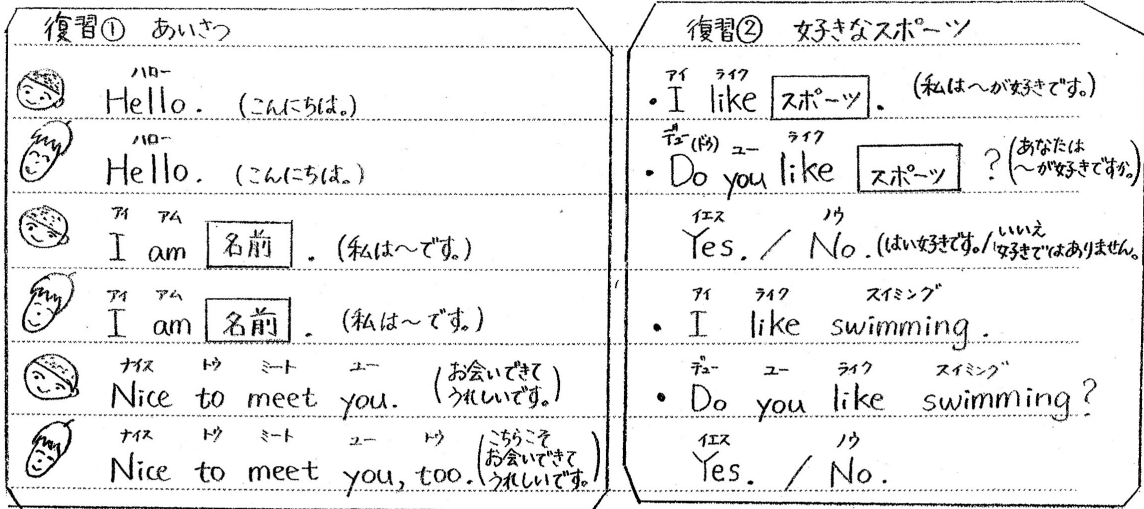 復習① あいさつ
ハロー
Hello. (こんにちは。)
ハロー
Hello. (こんにちは。)
アイ アム
I am 名前 . (私は〜です。)
アイ アム
I am 名前 . (私は〜です。)
ナイス トゥ ミート ユー
Nice to meet you. (お会いできて
うれしいです。)
ナイス トゥ ミート ユー トゥ
Nice to meet you, too. (こちらこそ
お会いできて
うれしいです。)
復習② 好きなスポーツ
アイ ライク
・I like スポーツ . (私は〜が好きです。)
デュー(ドゥ) ユー ライク
・Do you like スポーツ ? (あなたは
〜が好きですか。)
イエス ノウ
Yes. / No. (はい好きです。/いいえ
好きではありません。
アイ ライク スイミング
・I like swimming.
デュー ユー ライク スイミング
・Do you like swimming?
イエス ノウ
Yes. / No.